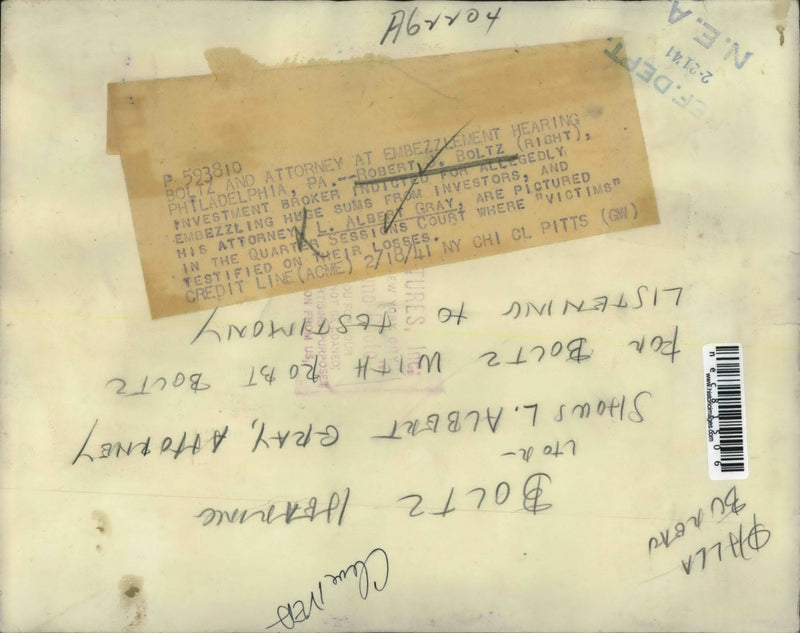 A62204
N.E.A.
REF. DEPT.
2-21-41
P 593810
BOLTZ AND ATTORNEY AT EMBEZZLEMENT HEARING
PHILADELPHIA, PA.--ROBERT J. BOLTZ (RIGHT),
INVESTMENT BROKER INDICTED FOR ALLEGEDLY
EMBEZZLING HUGE SUMS FROM INVESTORS, AND
HIS ATTORNEY, L. ALBERT GRAY, ARE PICTURED
IN THE QUARTER SESSIONS COURT WHERE "VICTIMS"
TESTIFIED ON THEIR LOSSES.
CREDIT LINE (ACME) 2/18/41 NY CHI CL PITTS (GW)
BOLTZ HEARING
L TO R-
SHOWS L. ALBERT GRAY, ATTORNEY
FOR BOLTZ WITH ROBT BOLTZ
LISTENING TO TESTIMONY
PHILA
BUREAU